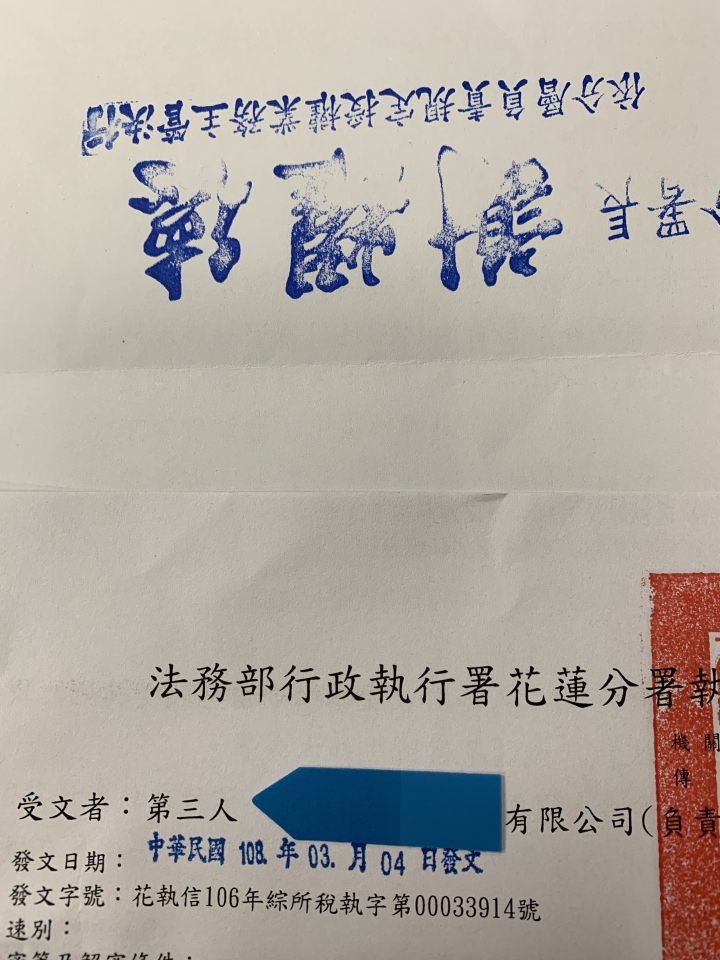 依分層負責規定授權業務主管決行
分署長 謝耀德
法務部行政執行署花蓮分署執
機關
傳
受文者：第三人 有限公司(負責
發文日期：中華民國 108. 年 03. 月 04 日發文
發文字號：花執信106年綜所稅執字第00033914號
速別：
密等及解密條件：